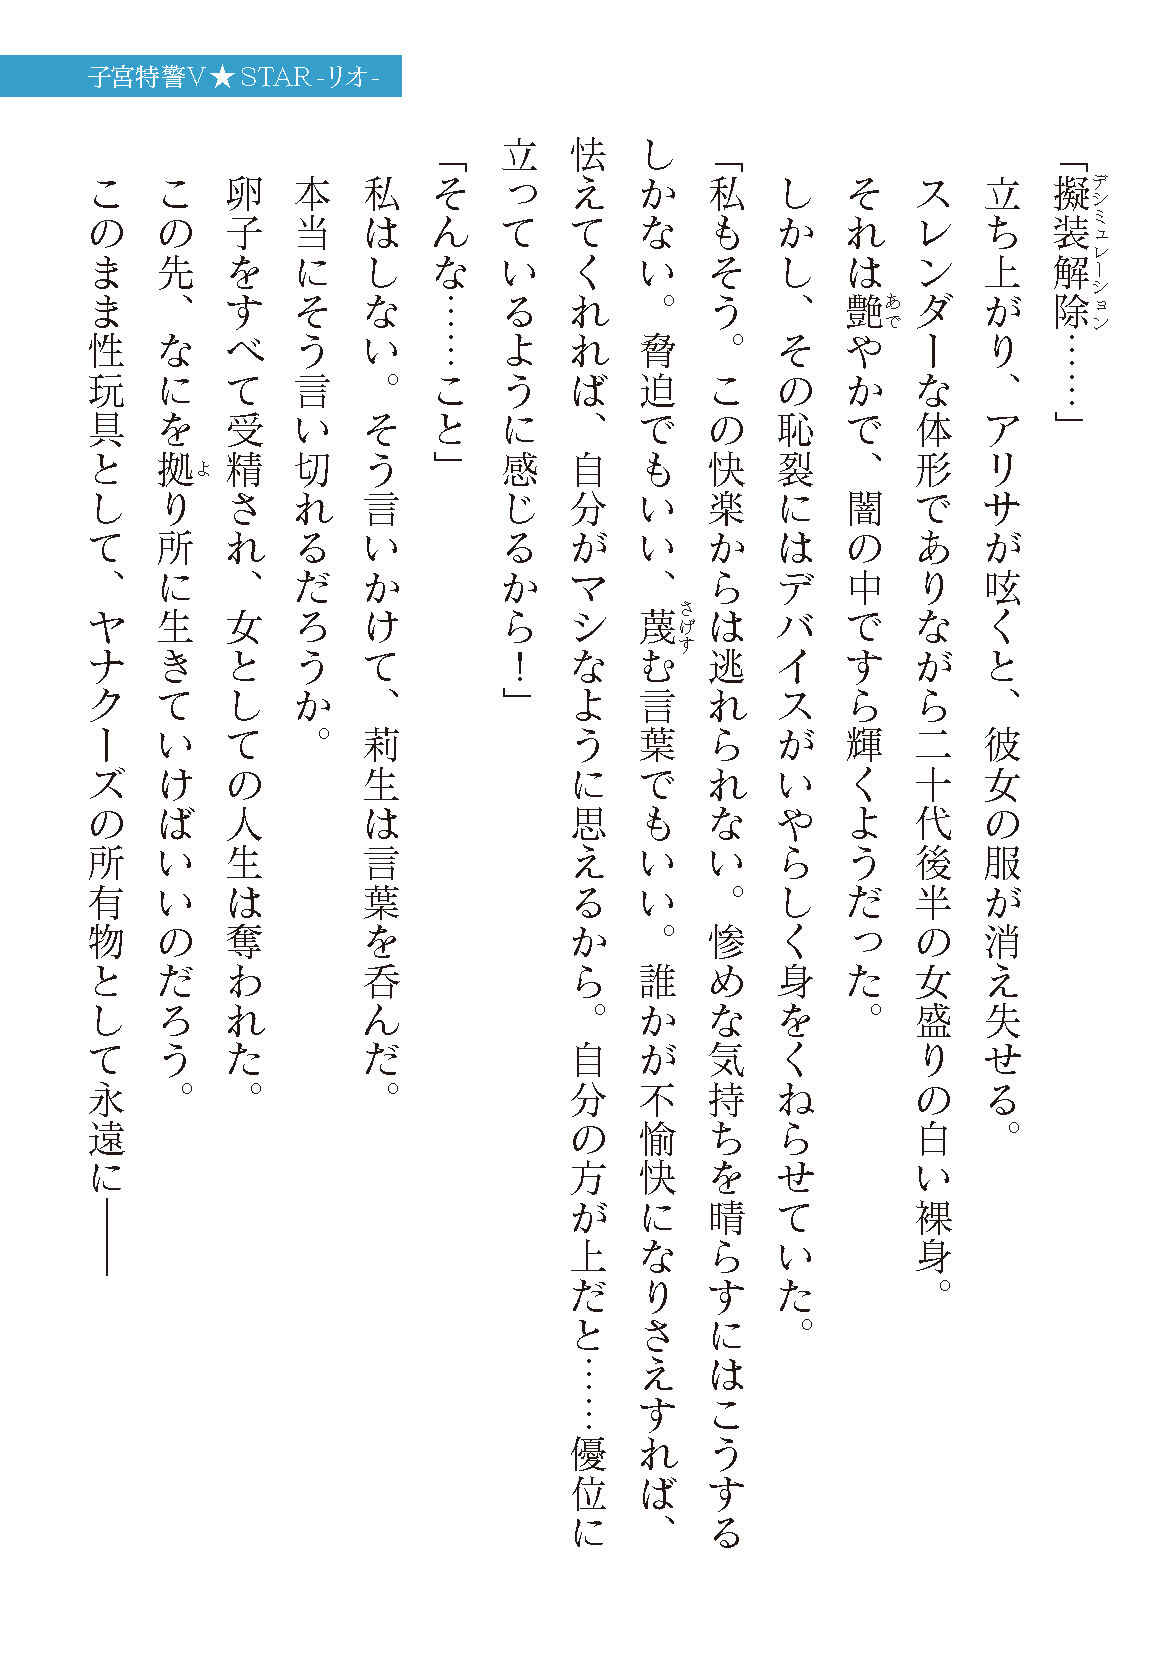 子宮特警V★STAR-リオ-
「擬装解除……」
デシミュレーション
立ち上がり、アリサが呟くと、彼女の服が消え失せる。
スレンダーな体形でありながら二十代後半の女盛りの白い裸身。
それは艶やかで、闇の中ですら輝くようだった。
あで
しかし、その恥裂にはデバイスがいやらしく身をくねらせていた。
「私もそう。この快楽からは逃れられない。惨めな気持ちを晴らすにはこうする
しかない。脅迫でもいい、蔑む言葉でもいい。誰かが不愉快になりさえすれば、
さげす
怯えてくれれば、自分がマシなように思えるから。自分の方が上だと……優位に
立っているように感じるから！」
「そんな……こと」
私はしない。そう言いかけて、莉生は言葉を呑んだ。
本当にそう言い切れるだろうか。
卵子をすべて受精され、女としての人生は奪われた。
この先、なにを拠り所に生きていけばいいのだろう。
よ
このまま性玩具として、ヤナクーズの所有物として永遠に――